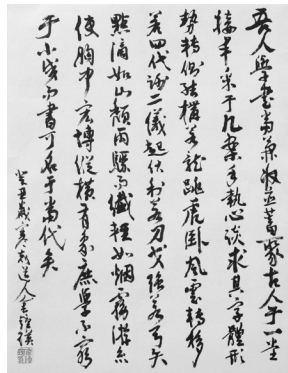 吾人學書當兼收並蓄聚古人于一坐
接丰采于几案手執心談求其字體形
勢轉側結構若龍跳虎臥風雲轉移
若四代謝二儀起伏利若刀戈強若弓矢
點滴如山頹雨驟而纖輕如烟霧游絲
使胸中宏博縱橫有象庶學不窮
于小成而書可名于當代矣
癸丑歲寒道人金